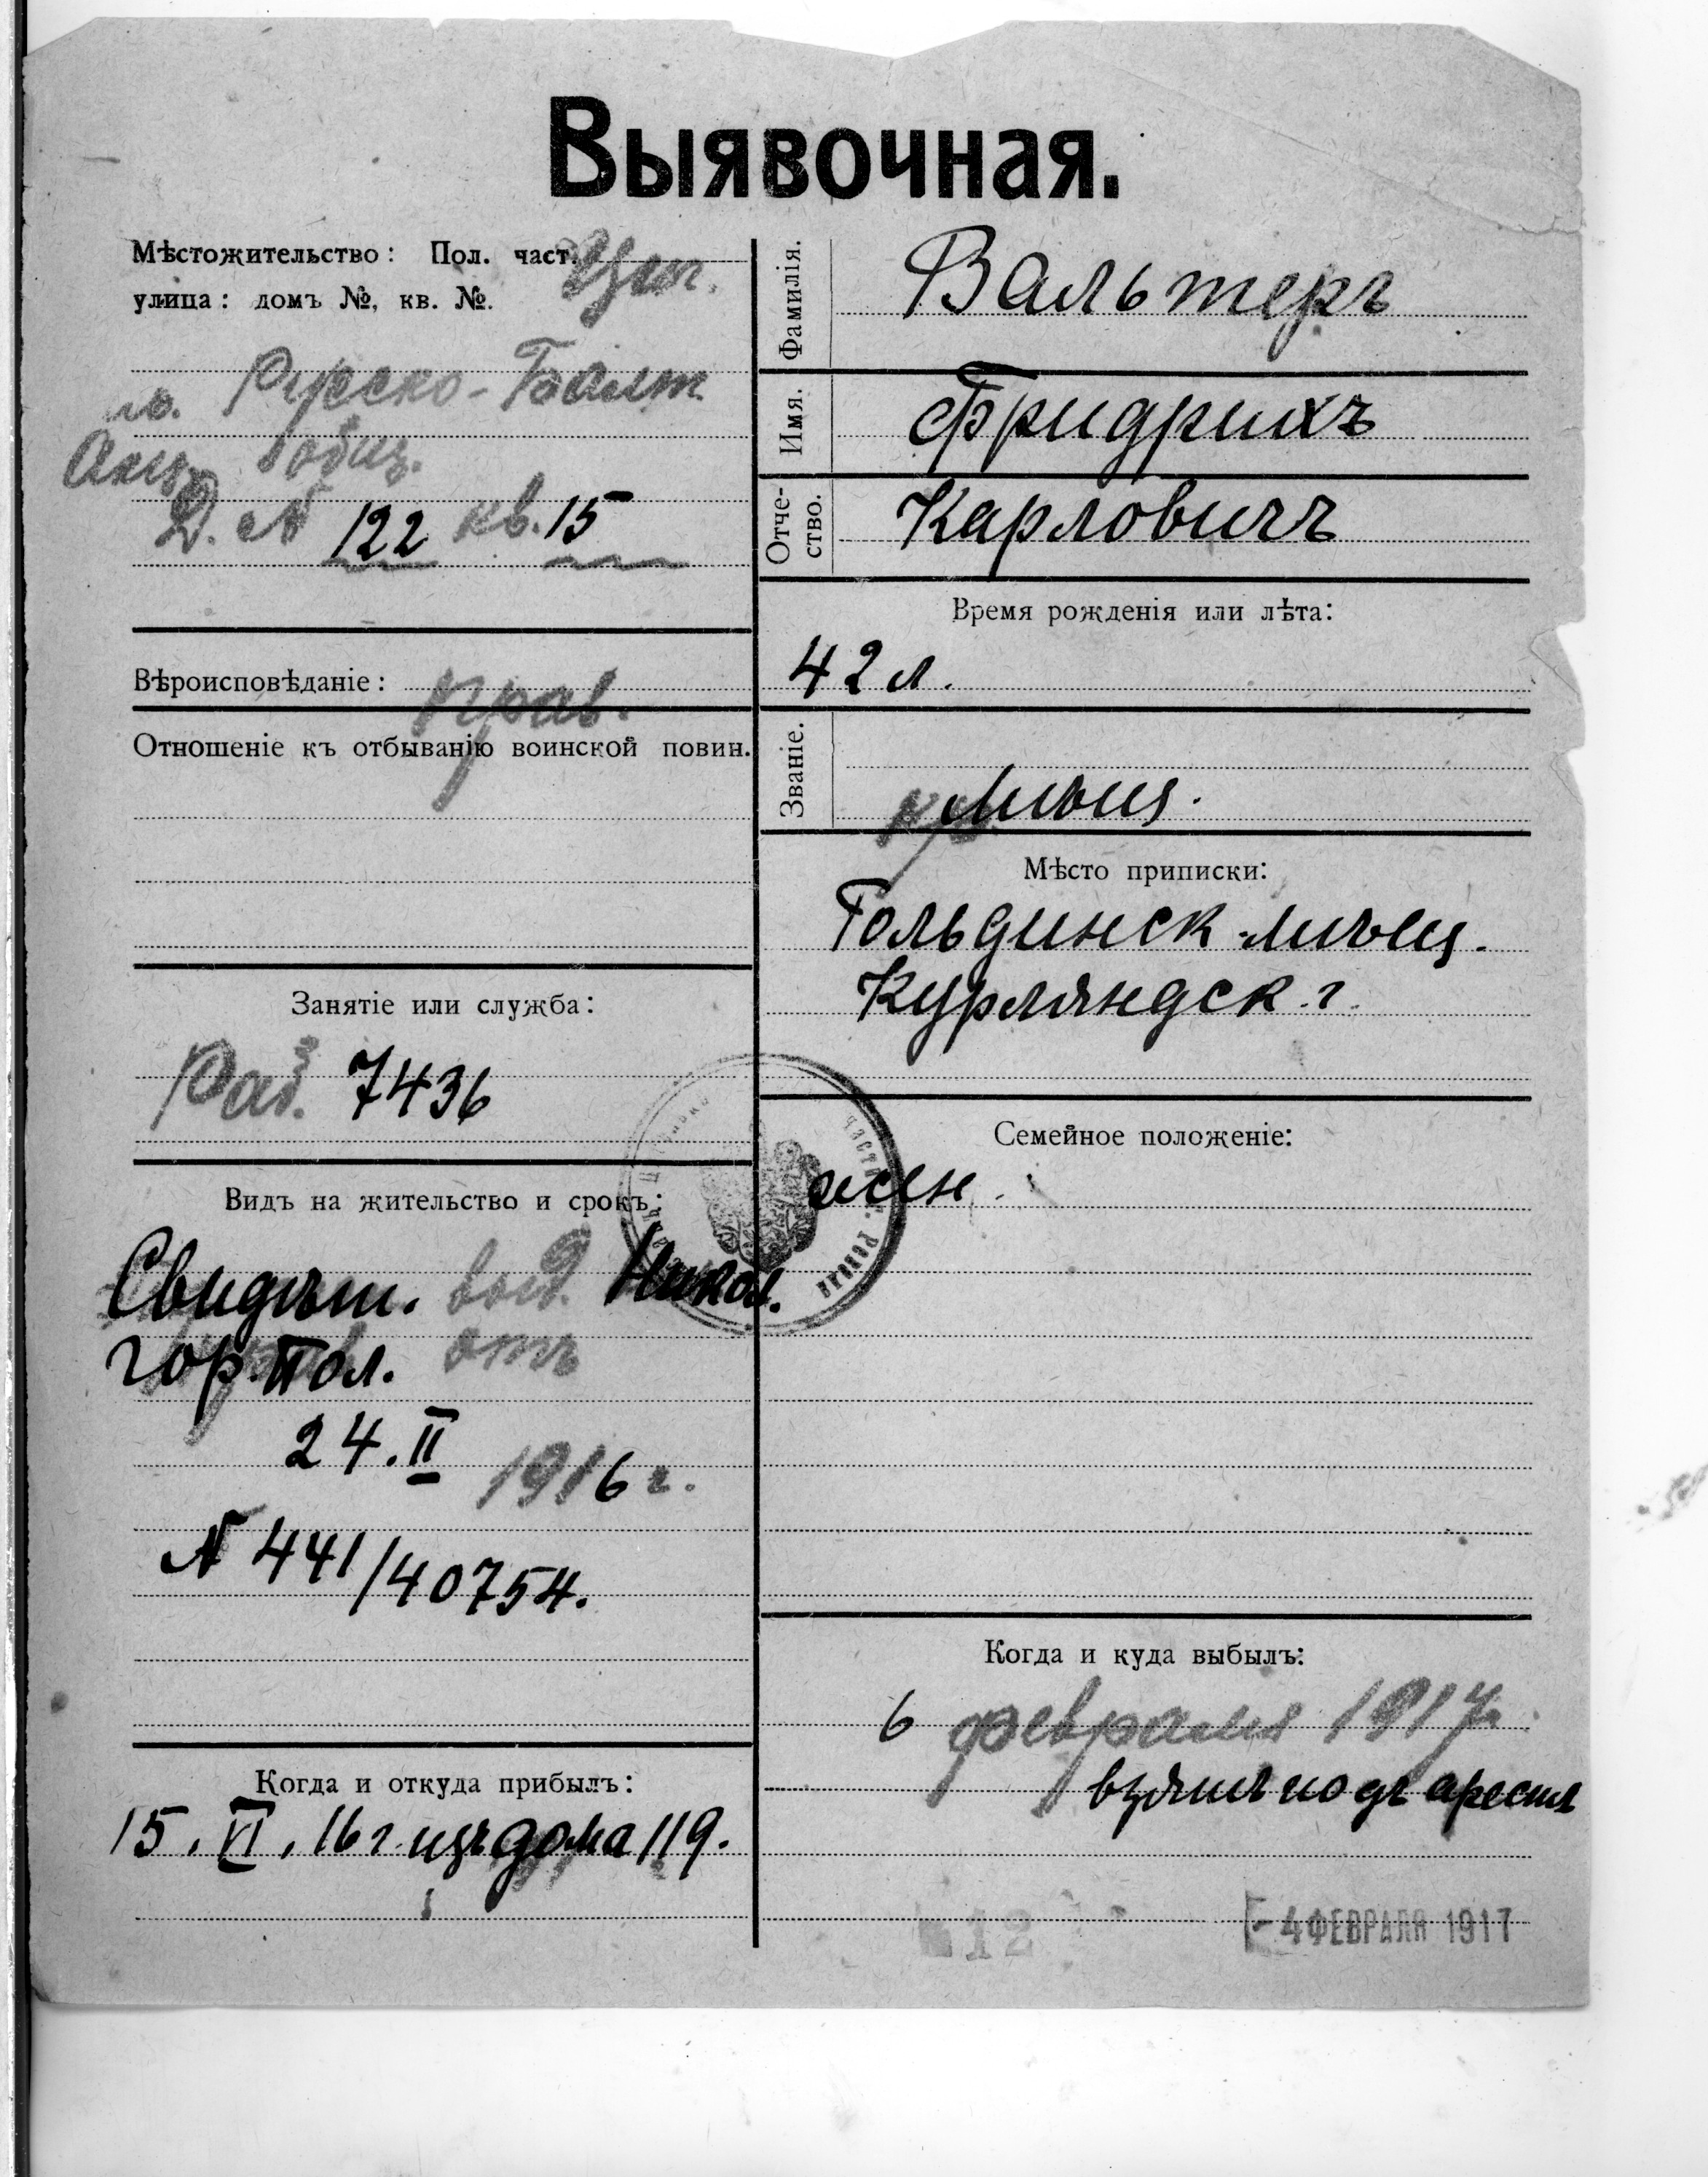 Выявочная.
Мѣстожительство: Пол. част. Цит.
улица: домъ №, кв. №.
Русско-Балт.
Акц. общ.
Д. № 122 кв. 15
Вѣроисповѣданіе: Прав.
Отношеніе къ отбыванію воинской повин.
Занятіе или служба:
Раб. 7436
Видъ на жительство и срокъ:
Свидѣт. выд. Никол.
гор. Пол. отъ
24. II 1916 г.
№ 441/40754.
Когда и откуда прибылъ:
15. VI. 16 г. изъ дома 119.
Фамилія. Вальтеръ
Имя. Фридрихъ
Отче-ство. Карловичъ
Время рожденія или лѣта:
42 л.
Званіе.
кр. мѣщ.
Мѣсто приписки:
Гольдинск. мѣщ.
Курляндск. г.
Семейное положеніе:
жен.
Когда и куда выбылъ:
6 февраля 1917 г.
взятъ подъ арестъ
12
-4 ФЕВРАЛЯ 1917